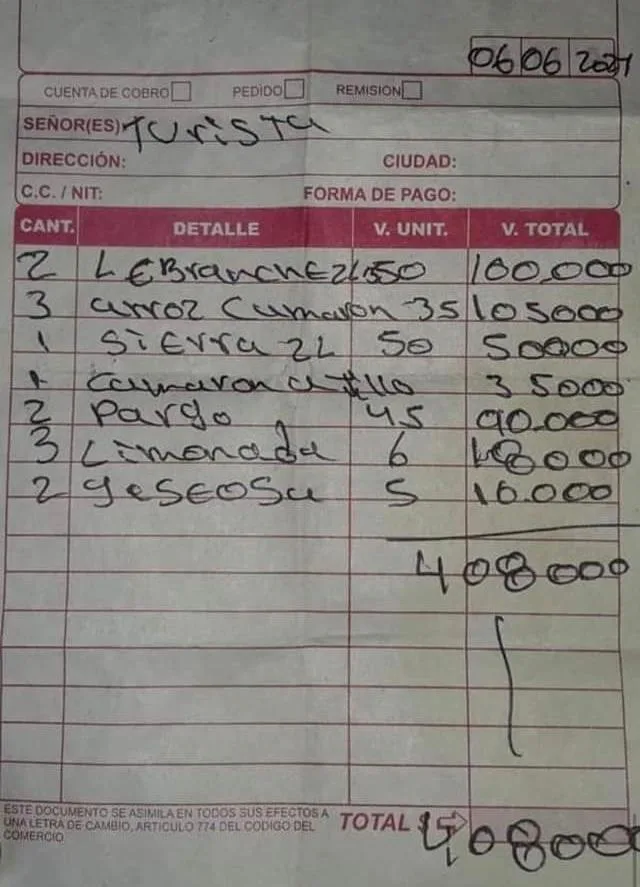 06 06 2021
CUENTA DE COBRO PEDIDO REMISION
SEÑOR(ES) Turista
DIRECCIÓN: CIUDAD:
C.C. / NIT: FORMA DE PAGO:
CANT. DETALLE V. UNIT. V. TOTAL
2 LEBranchE 50 100.000
3 arroz Camaron 35 105000
1 SiErra 2L 50 50000
1 Camaron 35000
2 Pargo 45 90.000
3 Limonada 6 18000
2 gasEOSa 5 10.000
408000
ESTE DOCUMENTO SE ASIMILA EN TODOS SUS EFECTOS A
UNA LETRA DE CAMBIO, ARTICULO 774 DEL CODIGO DEL
COMERCIO
TOTAL $ 408000